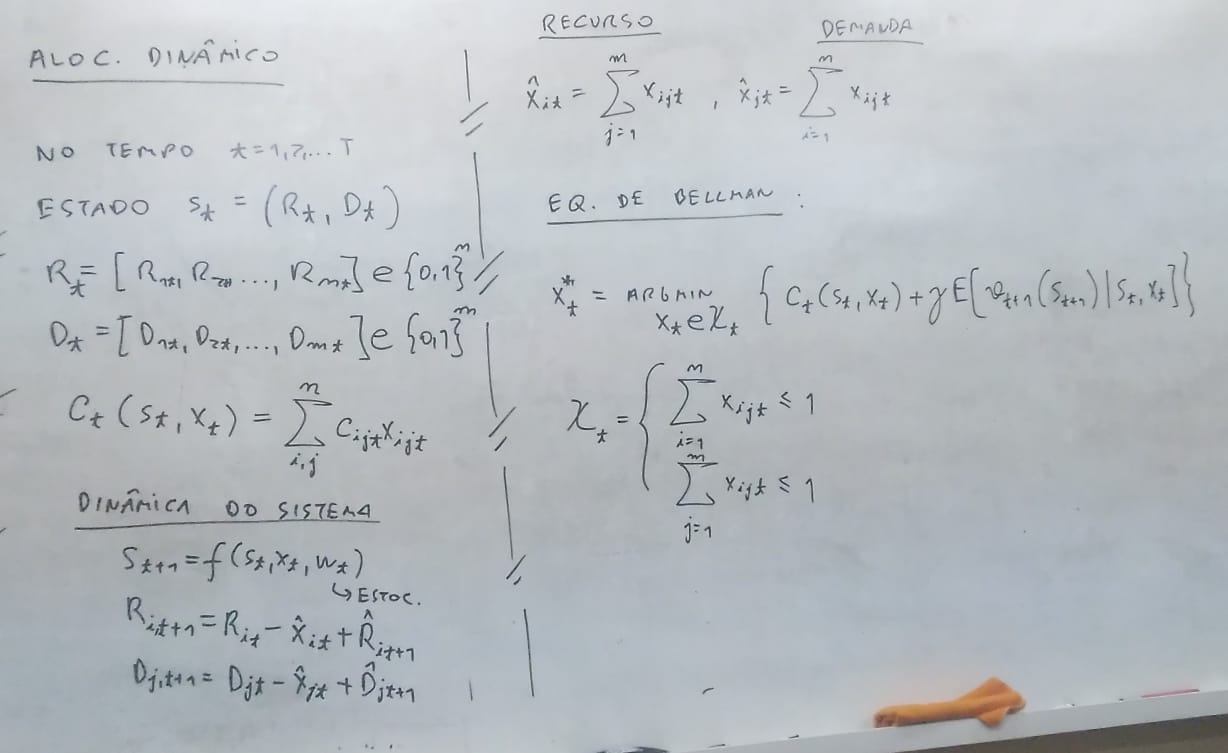 ALOC. DINÂMICO
NO TEMPO t=1,2,... T
ESTADO S_t = (R_t, D_t)
R_t = [R_1t, R_2t, ..., R_mt] ∈ {0,1}^m
D_t = [D_1t, D_2t, ..., D_mt] ∈ {0,1}^m
C_t (S_t, X_t) = ∑_{i,j}^{m} C_ijt X_ijt
DINÂMICA DO SISTEMA
S_t+1 = f (S_t, X_t, W_t)
↳ ESTOC.
R_i,t+1 = R_it - x̂_it + R̂_it+1
D_j,t+1 = D_jt - x̂_jt + D̂_jt+1
RECURSO
DEMANDA
x̂_it = ∑_{j=1}^{m} x_ijt , x̂_jt = ∑_{i=1}^{m} x_ijt
EQ. DE BELLMAN :
X*_t = ARGMIN_{X_t ∈ 𝒳_t} { C_t (S_t, X_t) + γ E[ v_t+1 (S_t+1) | S_t, X_t ] }
𝒳_t = { ∑_{i=1}^{m} x_ijt ≤ 1
∑_{j=1}^{m} x_ijt ≤ 1